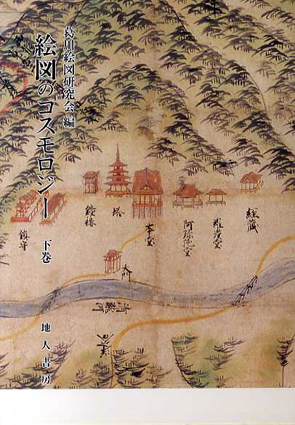 葛川絵図研究会編
絵図のコスモロジー
下巻
地人書房
経蔵
阿弥陀堂
本堂
塔
鐘楼
鎮守